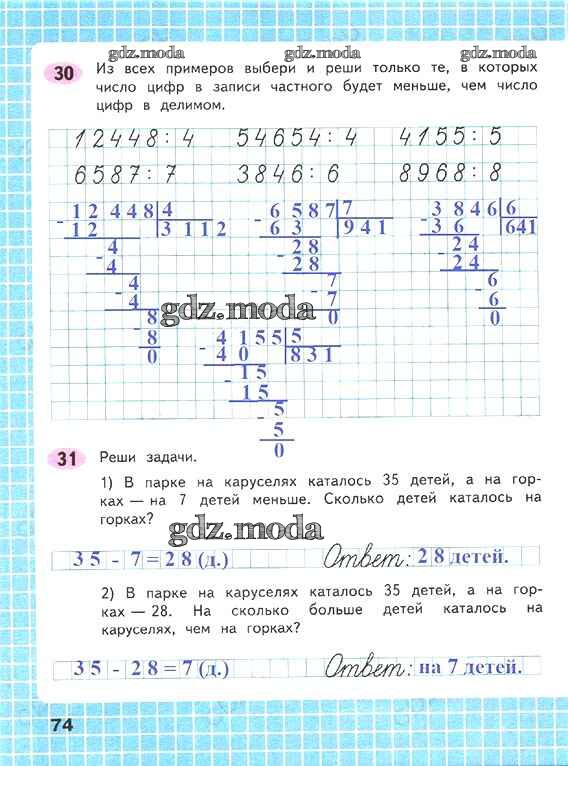 gdz.moda gdz.moda gdz.moda
30 Из всех примеров выбери и реши только те, в которых
число цифр в записи частного будет меньше, чем число
цифр в делимом.
12448 : 4 54654 : 4 4155 : 5
6587 : 7 3846 : 6 8968 : 8
- 12 448 4 - 6 587 7 - 3 846 6
12 3 112 6 3 941 3 6 641
- 4 - 28 - 24
4 28 24
- 4 - 7 - 6
4 7 6
8 0 0
gdz.moda
- 8 - 4 155 5
0 4 0 831
- 15
15
- 5
5
0
31 Реши задачи.
1) В парке на каруселях каталось 35 детей, а на гор-
ках — на 7 детей меньше. Сколько детей каталось на
горках?
gdz.moda
35 - 7 = 28 (д.) Ответ: 28 детей.
2) В парке на каруселях каталось 35 детей, а на гор-
ках — 28. На сколько больше детей каталось на
каруселях, чем на горках?
35 - 28 = 7 (д.) Ответ: на 7 детей.
74